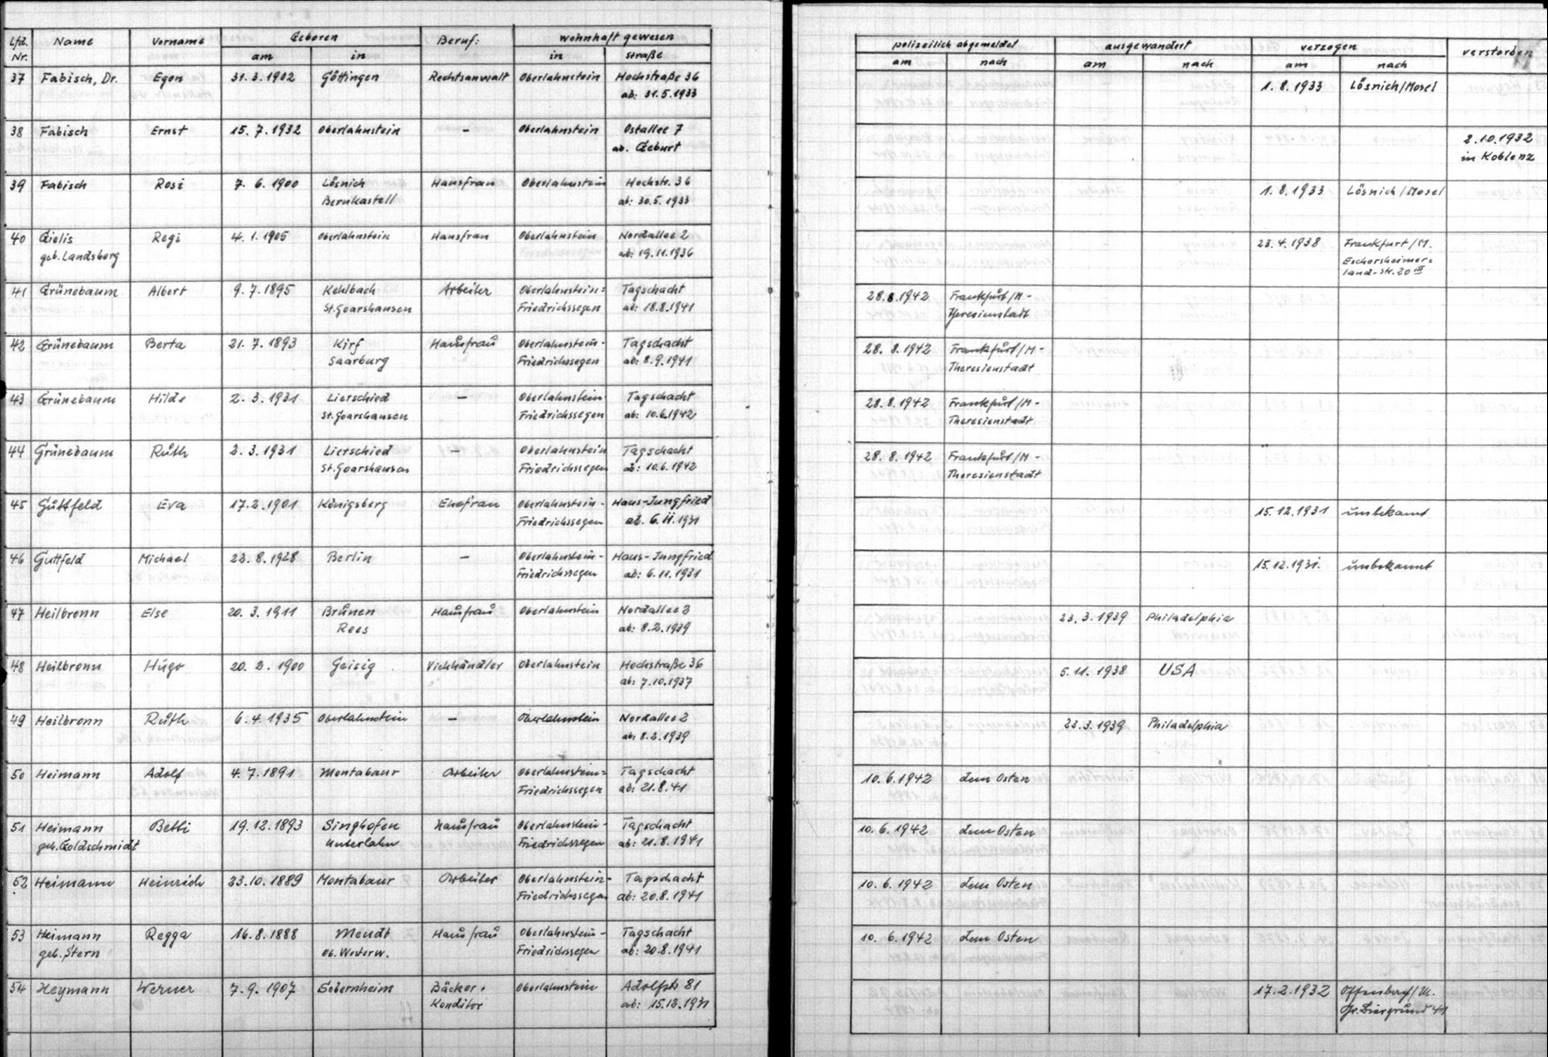 Lfd. Nr. Name Vorname Geboren am in Beruf: wohnhaft gewesen in straße polizeilich abgemeldet am nach ausgewandert am nach verzogen am nach verstorben
37 Fabisch, Dr. Egon 31.3.1902 Göttingen Rechtsanwalt Oberlahnstein Hochstraße 36 1.8.1933 Lösnich/Mosel
ab: 31.5.1933
38 Fabisch Ernst 15.7.1932 Oberlahnstein - Oberlahnstein Ostallee 7 2.10.1932
ab. Geburt in Koblenz
39 Fabisch Rosi 7.6.1900 Lösnich Hausfrau Oberlahnstein Hochstr. 36 1.8.1933 Lösnich/Mosel
Bernkastell ab: 30.5.1933
40 Gielis Regi 4.1.1905 Oberlahnstein Hausfrau Oberlahnstein Nordallee 2 23.4.1938 Frankfurt/M.
geb. Landsberg ab: 19.11.1936 Eschersheimer=
land-str. 20 III
41 Grünebaum Albert 9.7.1895 Kehlbach Arbeiter Oberlahnstein= Tagschacht 28.8.1942 Frankfurt/M-
St.Goarshausen Friedrichssegen ab: 18.8.1941 Theresienstadt
42 Grünebaum Berta 21.7.1893 Kirf Hausfrau Oberlahnstein- Tagschacht 28.8.1942 Frankfurt/M-
Saarburg Friedrichssegen ab: 8.9.1941 Theresienstadt
43 Grünebaum Hilde 2.3.1931 Lierschied - Oberlahnstein- Tagschacht 28.8.1942 Frankfurt/M-
St.Goarshausen Friedrichssegen ab: 10.6.1942 Theresienstadt
44 Grünebaum Ruth 2.3.1931 Lierschied - Oberlahnstein Tagschacht 28.8.1942 Frankfurt/M-
St.Goarshausen Friedrichssegen ab: 10.6.1942 Theresienstadt
45 Guttfeld Eva 17.2.1901 Königsberg Ehefrau Oberlahnstein- Haus-Jungfried 15.12.1931 unbekannt
Friedrichssegen ab. 6.11.1931
46 Guttfeld Michael 23.8.1928 Berlin - Oberlahnstein- Haus-Jungfried 15.12.1931. unbekannt
Friedrichssegen ab: 6.11.1931
47 Heilbronn Else 20.3.1911 Brünen Hausfrau Oberlahnstein Nordallee 2 23.3.1939 Philadelphia
Rees ab: 8.2.1939
48 Heilbronn Hugo 20.2.1900 Geisig Viehhändler Oberlahnstein Hochstraße 36 5.11.1938 USA
ab: 7.10.1937
49 Heilbronn Ruth 6.4.1935 Oberlahnstein - Oberlahnstein Nordallee 2 23.3.1939 Philadelphia
ab: 8.2.1939
50 Heimann Adolf 4.7.1891 Montabaur Arbeiter Oberlahnstein= Tagschacht 10.6.1942 Zum Osten
Friedrichssegen ab: 21.8.41
51 Heimann Betti 19.12.1893 Singhofen Hausfrau Oberlahnstein- Tagschacht 10.6.1942 Zum Osten
geb. Goldschmidt Unterlahn Friedrichssegen ab: 21.8.1941
52 Heimann Heinrich 23.10.1889 Montabaur Arbeiter Oberlahnstein- Tagschacht 10.6.1942 Zum Osten
Friedrichssegen ab: 20.8.1941
53 Heimann Regga 16.8.1888 Meudt Hausfrau Oberlahnstein- Tagschacht 10.6.1942 Zum Osten
geb. Stern Ob. Westerw. Friedrichssegen ab: 20.8.1941
54 Heymann Werner 7.9.1907 Sobernheim Bäcker + Oberlahnstein Adolfstr. 81 17.2.1932 Offenbach/M.
Konditor ab: 15.12.1931 Gr. Biergrund 41